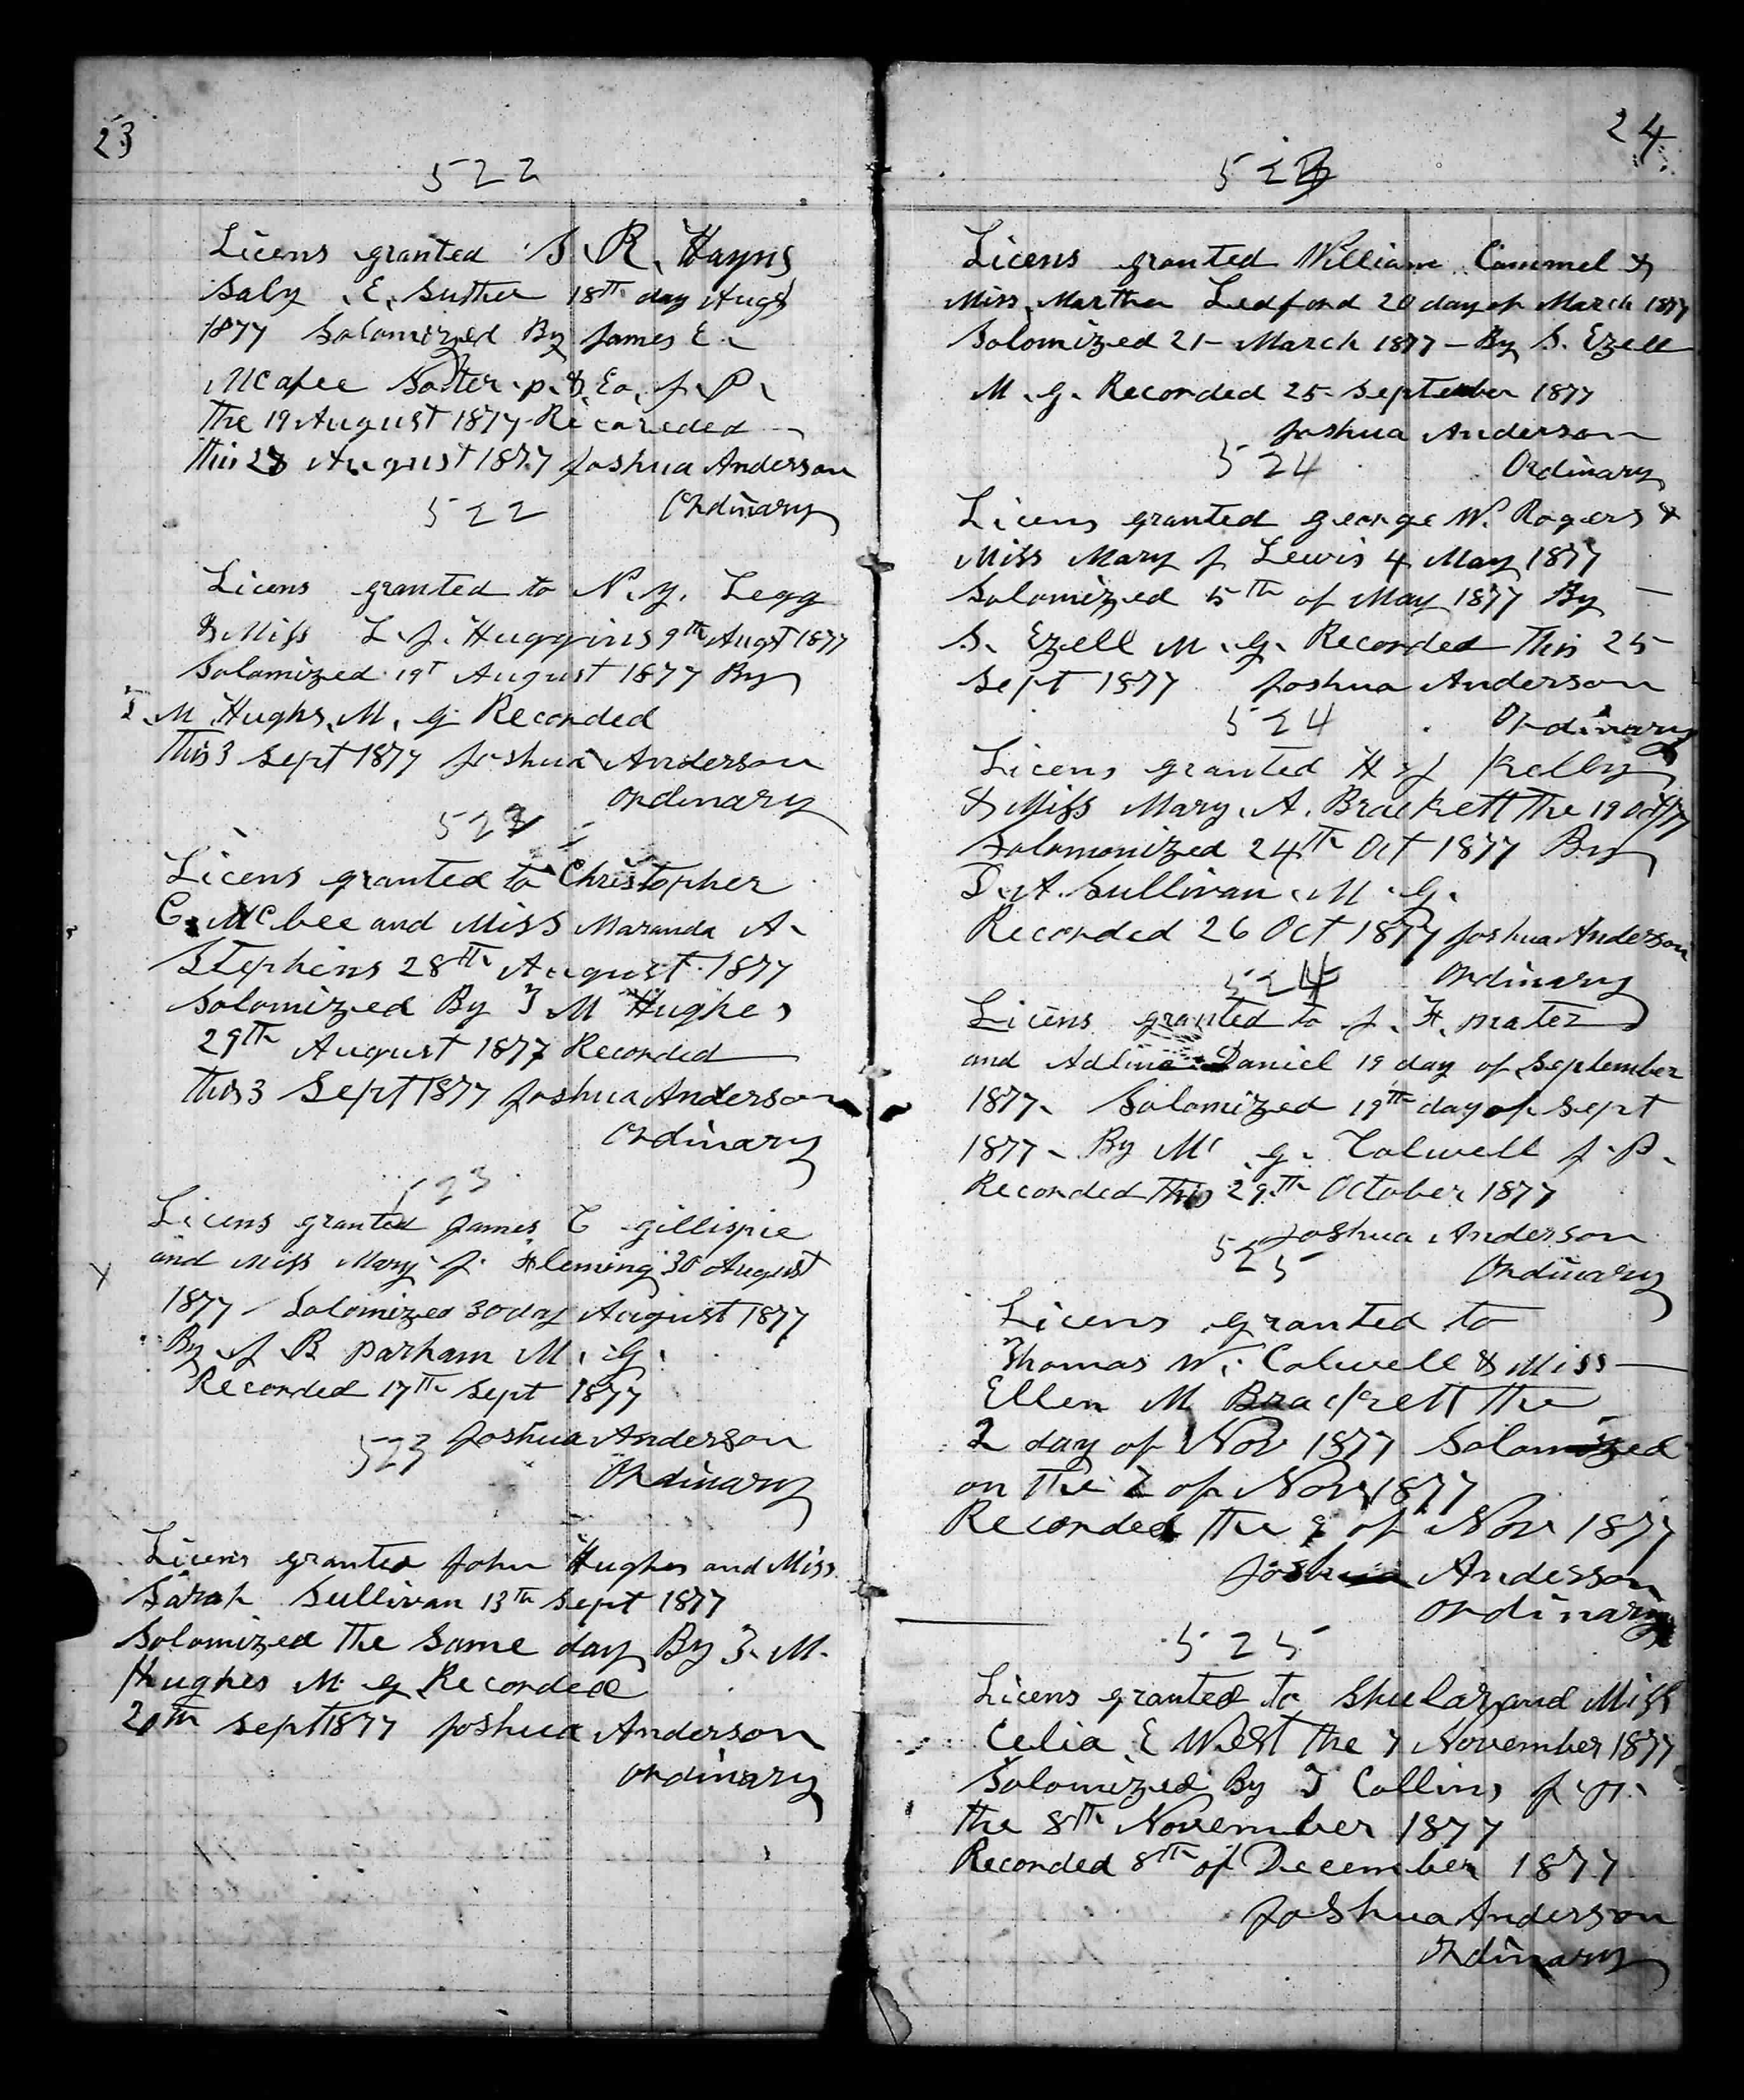 23
522
Licens granted S. R. Hayns
Saly . E. Suther 18th day Augt
1877 Solomized By James E.
McAfee Noter. p. & Eo. J. P.
the 19 August 1877 Recoreded
this 28 August 1877 Joshua Anderson
522 Ordinary
Licens granted to N. Y. Legg
& Miss L. J. Huggins 9th Augt 1877
Solamized 19t August 1877 By
T. M Hughs. M. G Recorded
This 3 Sept 1877 Joshua Anderson
Ordinary
522
Licens granted to Christopher
C. McBee and Miss Maranda A.
Stephens 28th August 1877
Solomized By T M Hughes
29th August 1877 Recorded
this 3 Sept 1877 Joshua Anderson
Ordinary
523
Licens granted James C gillispie
and Miss Mary J. Fleming 30 August
1877 Solomized 30 day August 1877
By J R Parham M. G.
Recorded 17th Sept 1877
Joshua Anderson
523
Ordinary
Licens granted John Hughes and Miss
Sarah Sullivan 13th Sept 1877
Solomized the Same day By T. M.
Hughes M. G Recorded
20th Sept 1877 Joshua Anderson
Ordinary
24
523
Licens granted William Cammel &
Miss Martha Ledford 20 day of March 1877
Solomized 21 - March 1877 - By S. Ezell
M. G. Recorded 25 September 1877
Joshua Anderson
524 Ordinary
Licens granted George W. Rogers &
Miss Mary J Lewis 4 May 1877
Solomized 5th of May 1877 By
S. Ezell M. G. Recorded this 25
Sept 1877 Joshua Anderson
524 Ordinary
Licens granted H J Kelly
& Miss Mary. A. Brackett the 19 Oct/77
Solomonized 24th Oct 1877 By
D. A. Sullivan. M. G.
Recorded 26 Oct 1877 Joshua Anderson
524 Ordinary
Licens granted to J. H. prater
and Adline Daniel 19 day of September
1877. Solomized 19th day of Sept
1877 - By Mc G. Colwell J. P.
Recorded this 29th October 1877
Joshua Anderson
525 Ordinary
Licens granted to
Thomas W. Colwell & Miss
Ellen M Brackett the
2 day of Nov 1877 Solomized
on the 2 of Nov 1877
Recorded the 9 of Nov 1877
Joshua Anderson
Ordinary
525
Licens granted to Shular and Miss
Celia E West the 7 November 1877
Solomized By T Collins J. P.
the 8th November 1877
Recorded 8th of December 1877
Joshua Anderson
Ordinary